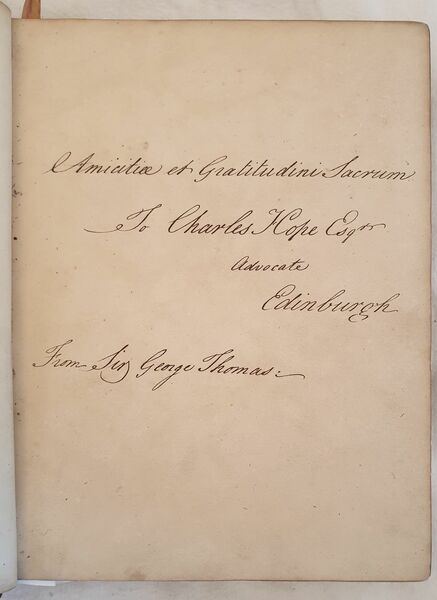 Amicitiæ et Gratitudini Sacrum
To Charles Hope Esqr
Advocate
Edinburgh
From Sir George Thomas.